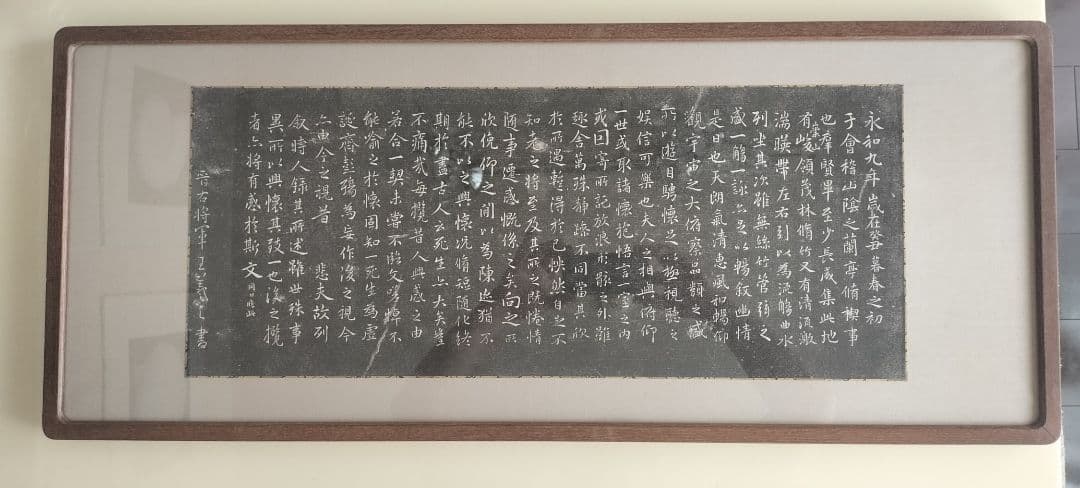 永和九年歲在癸丑暮春之初
于會稽山陰之蘭亭脩禊事
也羣賢畢至少長咸集此地
有崇山峻領茂林脩竹又有清流激
湍暎帶左右引以為流觴曲水
列坐其次雖無絲竹管弦之
盛一觴一詠亦足以暢敘幽情
是日也天朗氣清惠風和暢仰
觀宇宙之大俯察品類之盛
所以遊目騁懷足以極視聽之
娛信可樂也夫人之相與俯仰
一世或取諸懷抱悟言一室之內
或因寄所託放浪形骸之外雖
趣舍萬殊靜躁不同當其欣
於所遇蹔得於己怏然自足不
知老之將至及其所之既惓情
隨事遷感慨係之矣向之所
欣俛仰之間以為陳迹猶不
能不以之興懷況脩短隨化終
期於盡古人云死生亦大矣豈
不痛哉每攬昔人興感之由
若合一契未嘗不臨文嗟悼不
能喻之於懷固知一死生為虛
誕齊彭殤為妄作後之視今
亦由今之視昔 悲夫故列
敘時人錄其所述雖世殊事
異所以興懷其致一也後之攬
者亦將有感於斯文
晉右將軍王羲之書